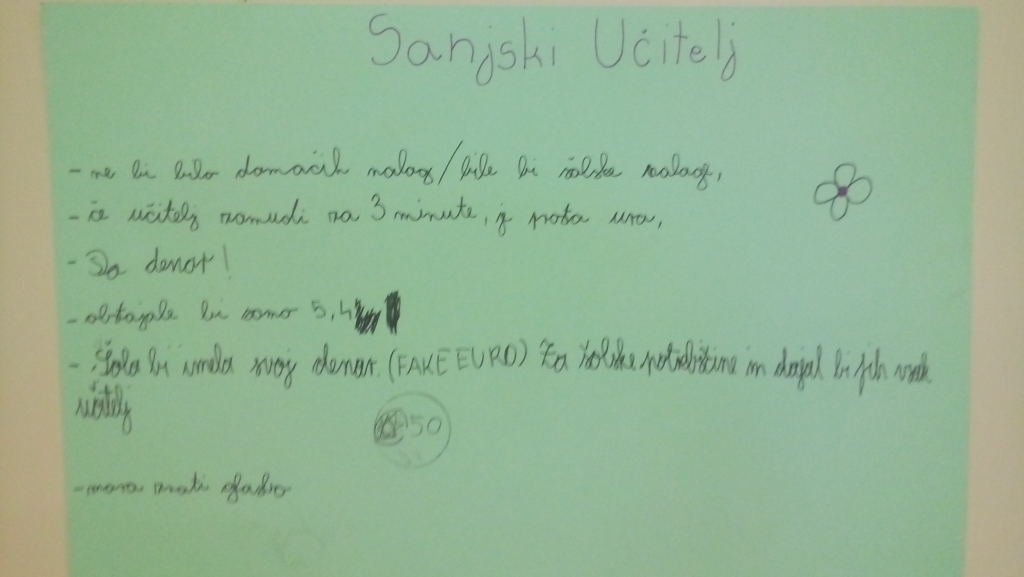 Sanjski Učitelj
- ne bi bilo domačih nalog/bile bi šolske naloge,
- če učitelj zamudi za 3 minute, je prosta ura,
- Da denar!
- obstajale bi samo 5,4
- Šola bi imela svoj denar. (FAKE EURO) Za šolske potrebščine in dajal bi jih vsak
učitelj
50
- mora znati